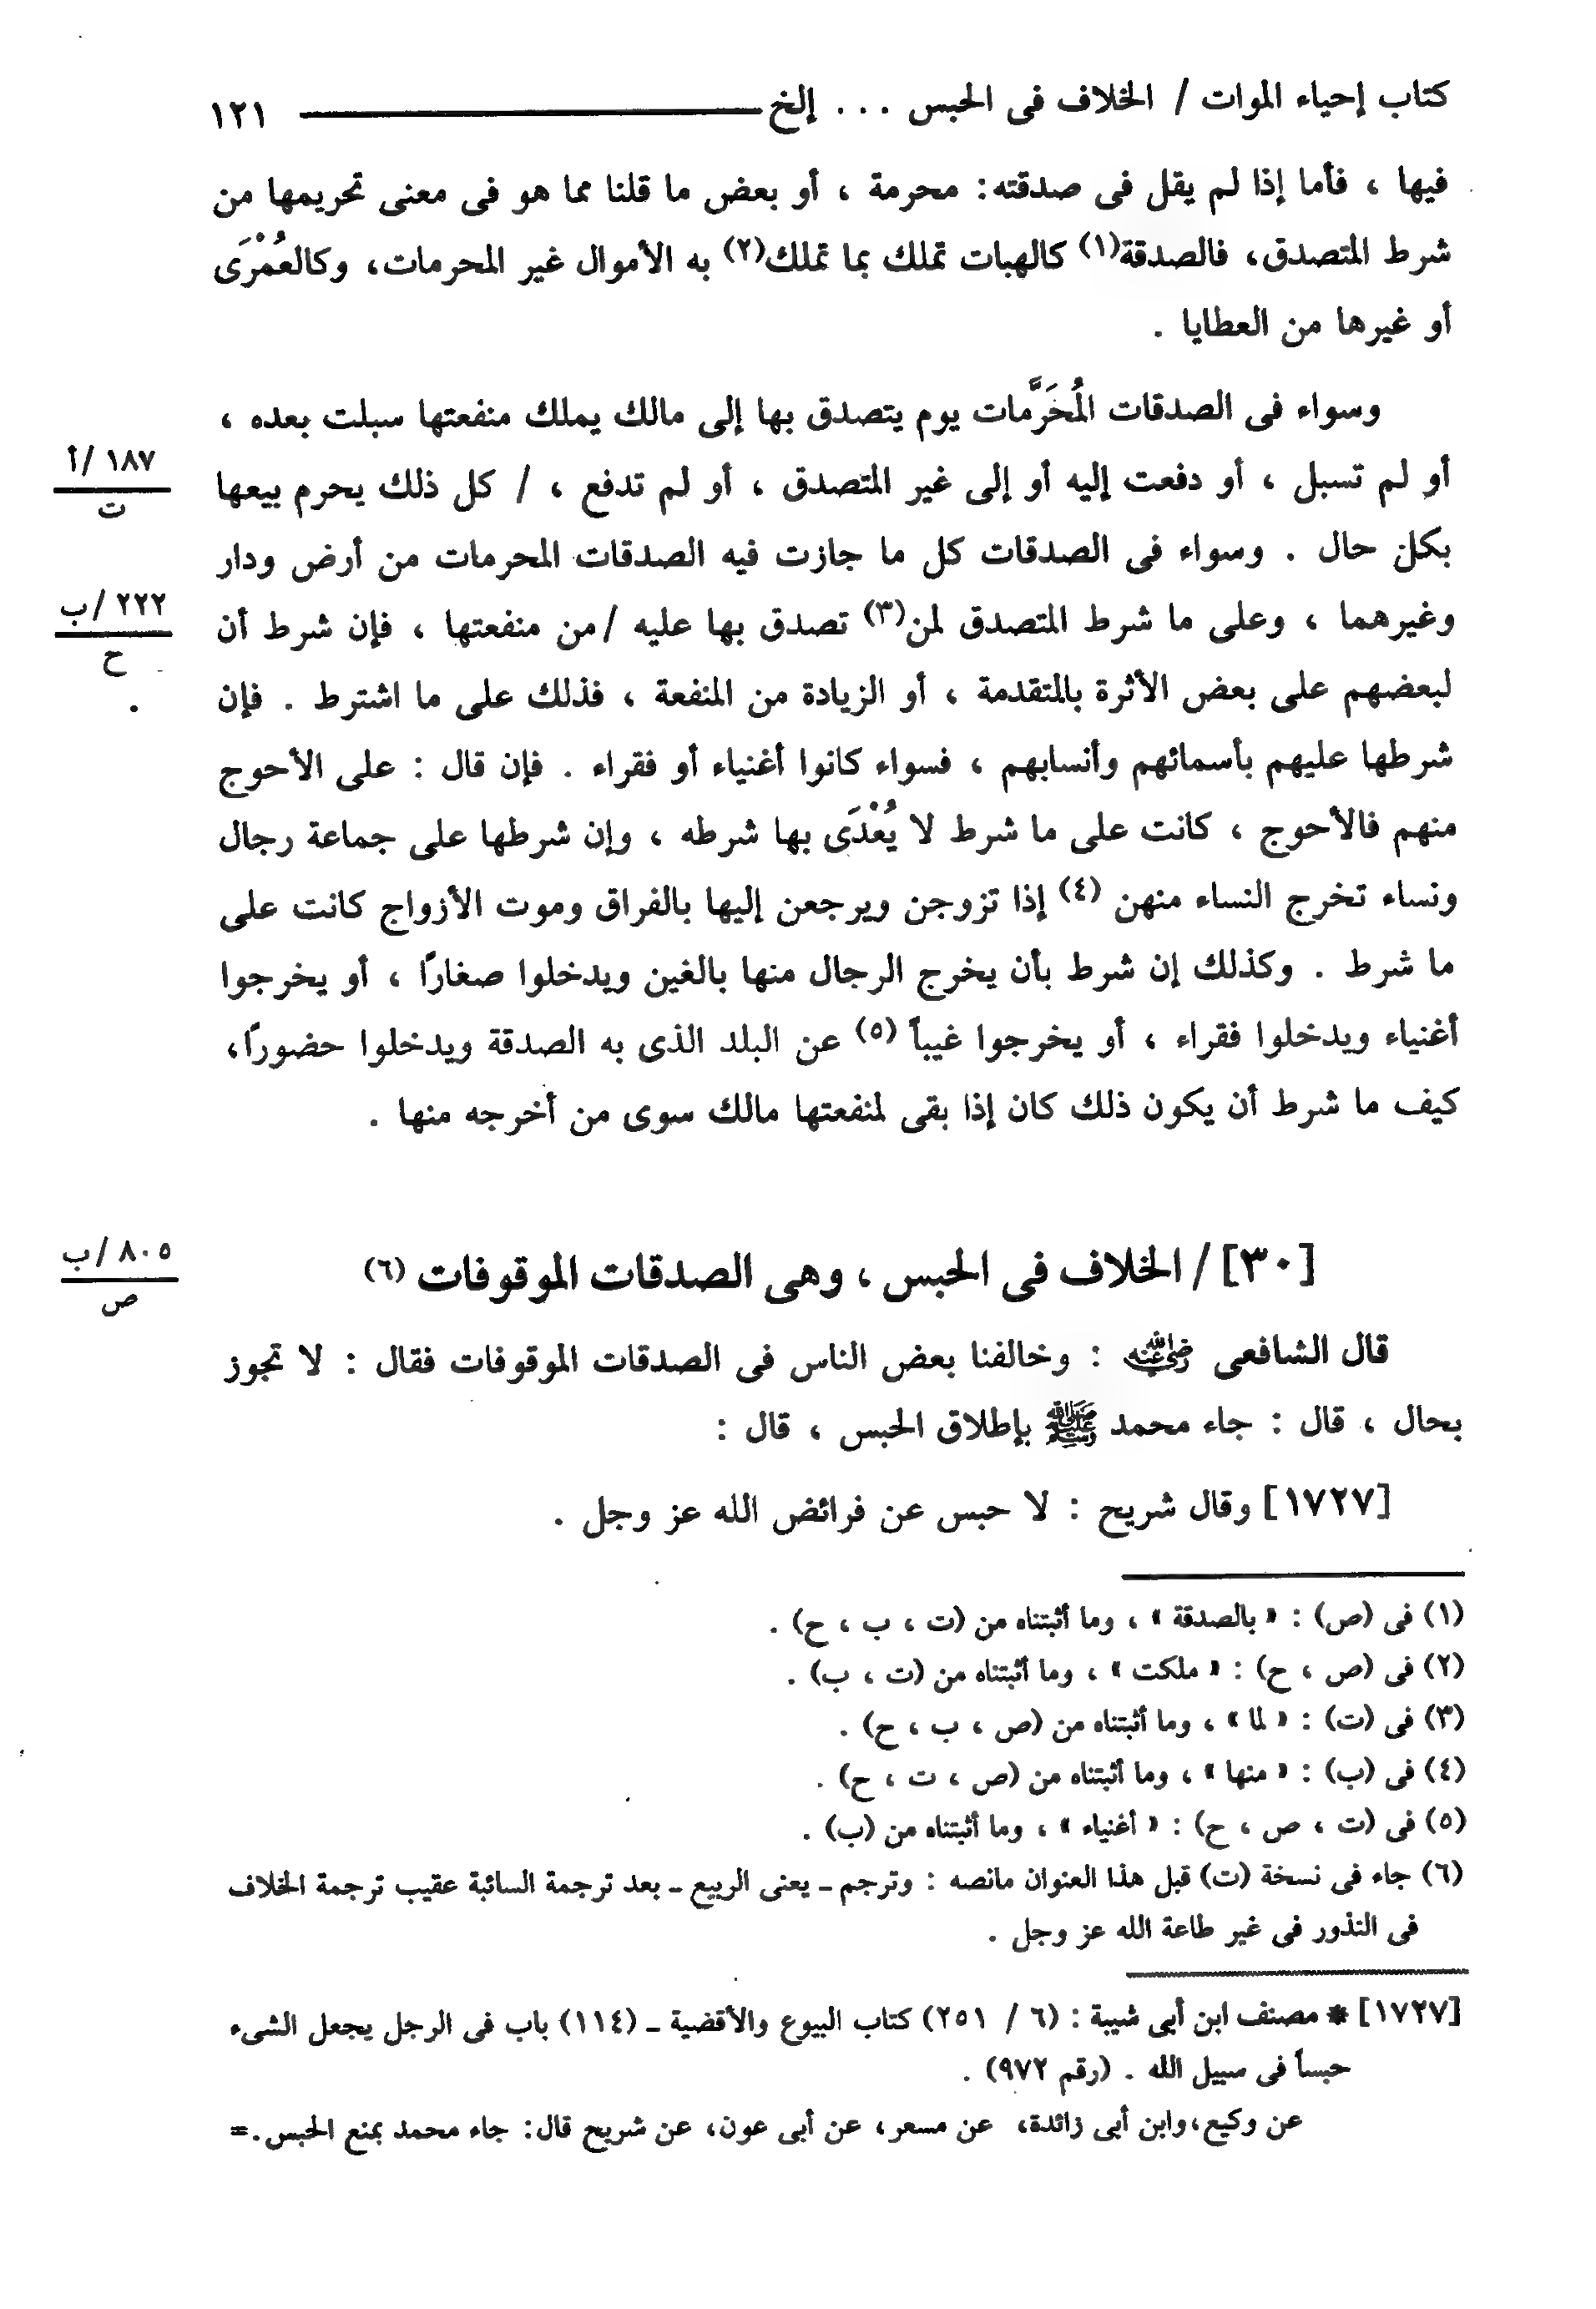 كتاب إحياء الموات / الخلاف فى الحبس . . . إلخ ١٢١
فيها ، فأما إذا لم يقل فى صدقته: محرمة ، أو بعض ما قلنا مما هو فى معنى تحريمها من
شرط المتصدق، فالصدقة(١) كالهبات تملك بما تملك(٢) به الأموال غير المحرمات، وكالعُمْرَى
أو غيرها من العطايا .
وسواء فى الصدقات المُحَرَّمات يوم يتصدق بها إلى مالك يملك منفعتها سبلت بعده ،
أو لم تسبل ، أو دفعت إليه أو إلى غير المتصدق ، أو لم تدفع ، / كل ذلك يحرم بيعها
١٨٧ /أ
ت
بكل حال . وسواء فى الصدقات كل ما جازت فيه الصدقات المحرمات من أرض ودار
وغيرهما ، وعلى ما شرط المتصدق لمن(٣) تصدق بها عليه /من منفعتها ، فإن شرط أن
٢٢٢ /ب
ح
لبعضهم على بعض الأثرة بالتقدمة ، أو الزيادة من المنفعة ، فذلك على ما اشترط . فإن
شرطها عليهم بأسمائهم وأنسابهم ، فسواء كانوا أغنياء أو فقراء . فإن قال : على الأحوج
منهم فالأحوج ، كانت على ما شرط لا يُعْدَى بها شرطه ، وإن شرطها على جماعة رجال
ونساء تخرج النساء منهن (٤) إذا تزوجن ويرجعن إليها بالفراق وموت الأزواج كانت على
ما شرط . وكذلك إن شرط بأن يخرج الرجال منها بالغين ويدخلوا صغارًا ، أو يخرجوا
أغنياء ويدخلوا فقراء ، أو يخرجوا غيباً (٥) عن البلد الذى به الصدقة ويدخلوا حضورًا،
كيف ما شرط أن يكون ذلك كان إذا بقى لمنفعتها مالك سوى من أخرجه منها .
[٣٠] / الخلاف فى الحبس ، وهى الصدقات الموقوفات (٦)
٨٠٥ /ب
ص
قال الشافعى رضي الله عنه : وخالفنا بعض الناس فى الصدقات الموقوفات فقال : لا تجوز
بحال ، قال : جاء محمد ﷺ بإطلاق الحبس ، قال :
[١٧٢٧] وقال شريح : لا حبس عن فرائض الله عز وجل .
(١) فى (ص) : « بالصدقة » ، وما أثبتناه من (ت ، ب ، ح) .
(٢) فى (ص ، ح) : « ملكت » ، وما أثبتناه من (ت ، ب) .
(٣) فى (ت) : « لما » ، وما أثبتناه من (ص ، ب ، ح) .
(٤) فى (ب) : « منها » ، وما أثبتناه من (ص ، ت ، ح) .
(٥) فى (ت ، ص ، ح) : « أغنياء » ، وما أثبتناه من (ب) .
(٦) جاء فى نسخة (ت) قبل هذا العنوان مانصه : وترجم ـ يعنى الربيع ـ بعد ترجمة السائبة عقيب ترجمة الخلاف
فى النذور فى غير طاعة الله عز وجل .
[١٧٢٧] * مصنف ابن أبى شيبة : (٦ / ٢٥١) كتاب البيوع والأقضية ـ (١١٤) باب فى الرجل يجعل الشىء
حبساً فى سبيل الله . (رقم ٩٧٢) .
عن وكيع،وابن أبى زائدة، عن مسعر، عن أبى عون، عن شريح قال: جاء محمد بمنع الحبس.=